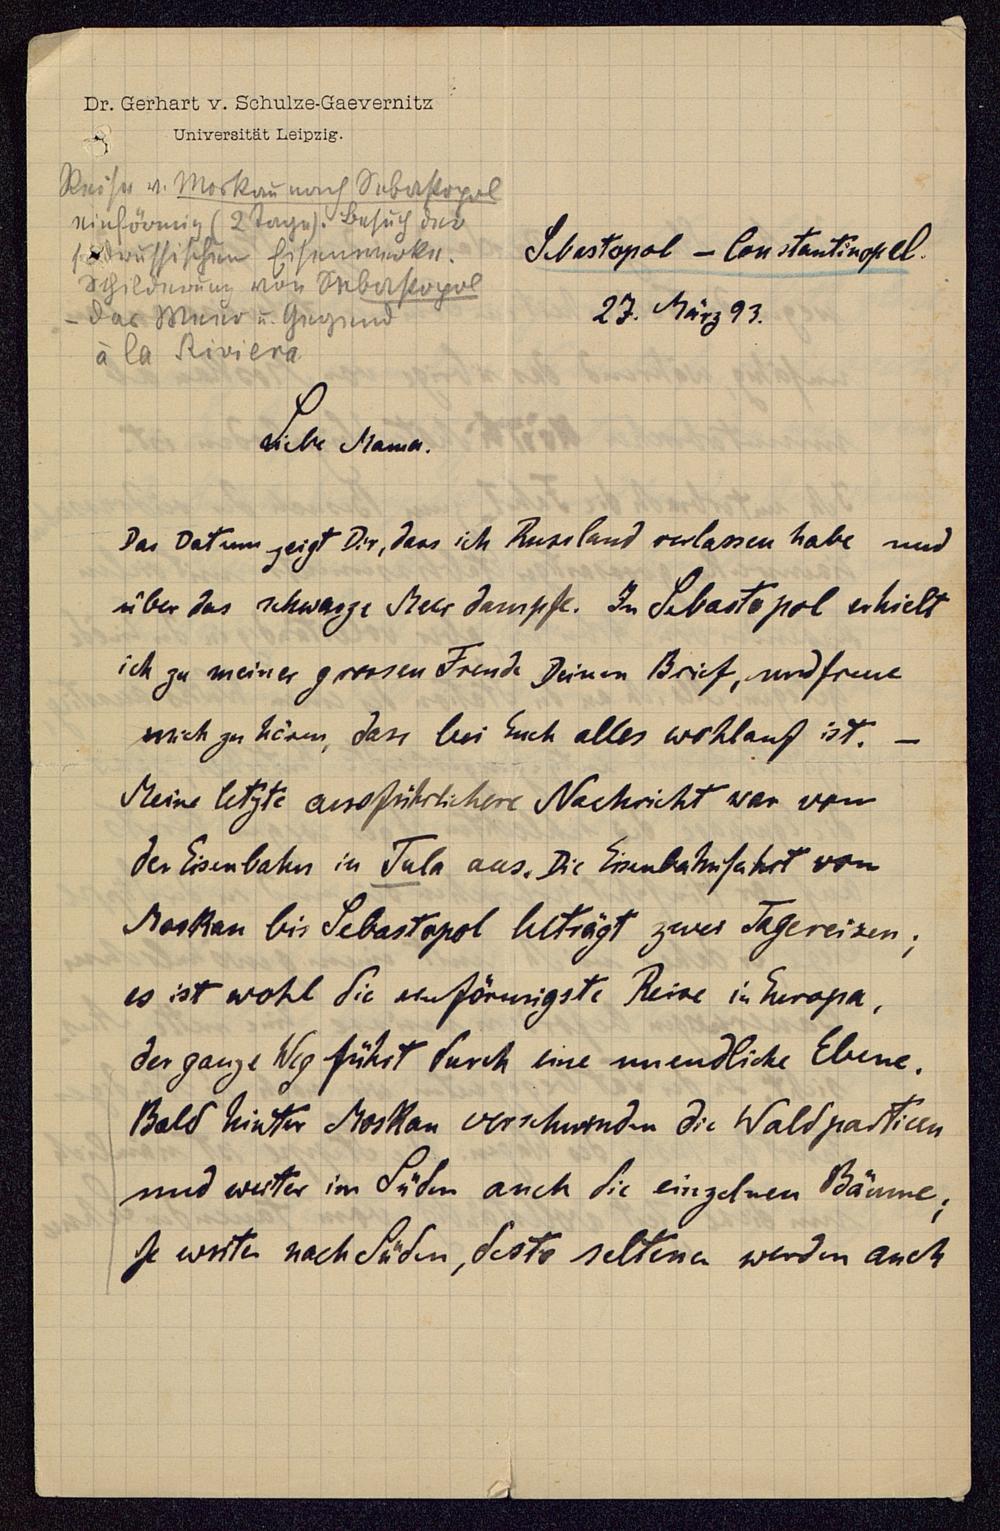 Dr. Gerhart v. Schulze-Gaevernitz
Universität Leipzig.
Reise v. Moskau nach Sebastopol
einförmig (2 Tage). Besuch der
südrussischen Eisenwerke.
Schilderung von Sebastopol
- das Meer u. Gegend
à la Riviera
Sebastopol – Constantinopel.
27. März 93.
Liebe Mama.
Das Datum zeigt Dir, dass ich Russland verlassen habe und
über das schwarze Meer dampfe. In Sebastopol erhielt
ich zu meiner grossen Freude Deinen Brief, und freue
mich zu hören, dass bei Euch alles wohlauf ist. –
Meine letzte ausführlichere Nachricht war von
der Eisenbahn in Tula aus. Die Eisenbahnfahrt von
Moskau bis Sebastopol beträgt zwei Tagereisen;
es ist wohl die einförmigste Reise in Europa,
der ganze Weg führt durch eine unendliche Ebene.
Bald hinter Moskau verschwinden die Waldpartieen
und weiter im Süden auch die einzelnen Bäume;
Je weiter nach Süden, desto seltener werden auch